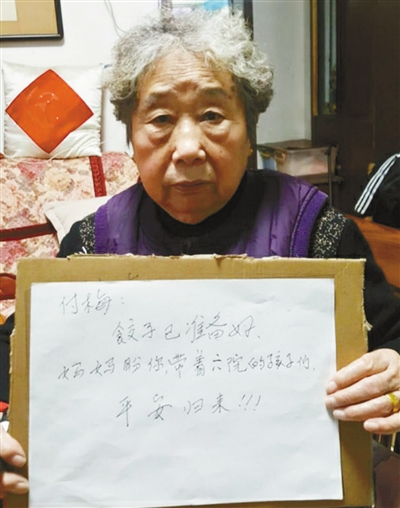 付梅：
饺子已准备好.
妈妈盼你带着六院的孩子们.
平安归来!!!